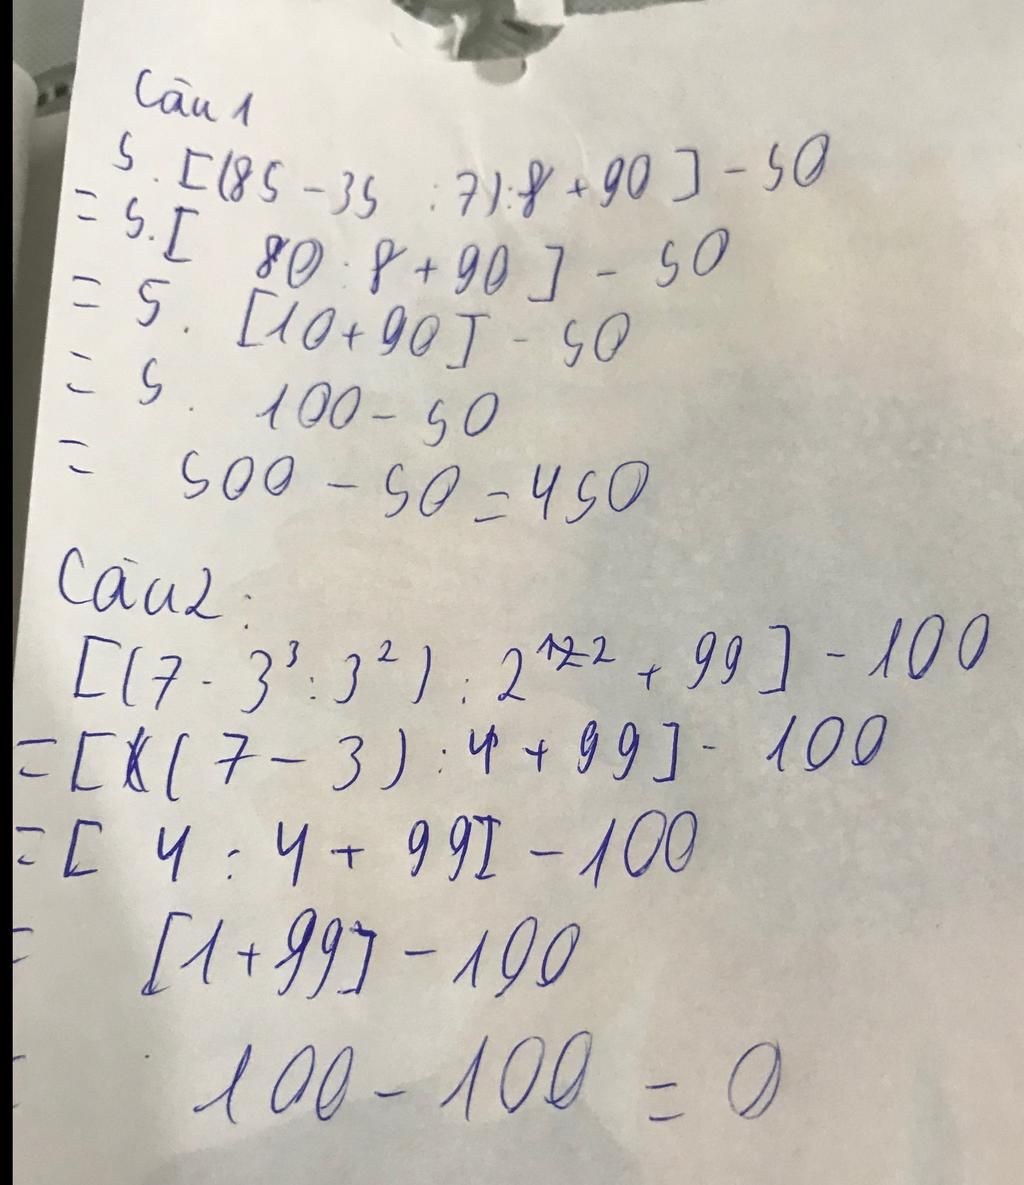 Câu 1
5. [(85 - 35 : 7) : 8 + 90] - 50
= 5. [ 80 : 8 + 90 ] - 50
= 5. [10 + 90] - 50
= 5. 100 - 50
= 500 - 50 = 450
Câu 2:
[(7 - 3³ : 3²) : 2² + 99] - 100
= [( 7 - 3 ) : 4 + 99] - 100
= [ 4 : 4 + 99] - 100
= [1 + 99] - 100
= 100 - 100 = 0